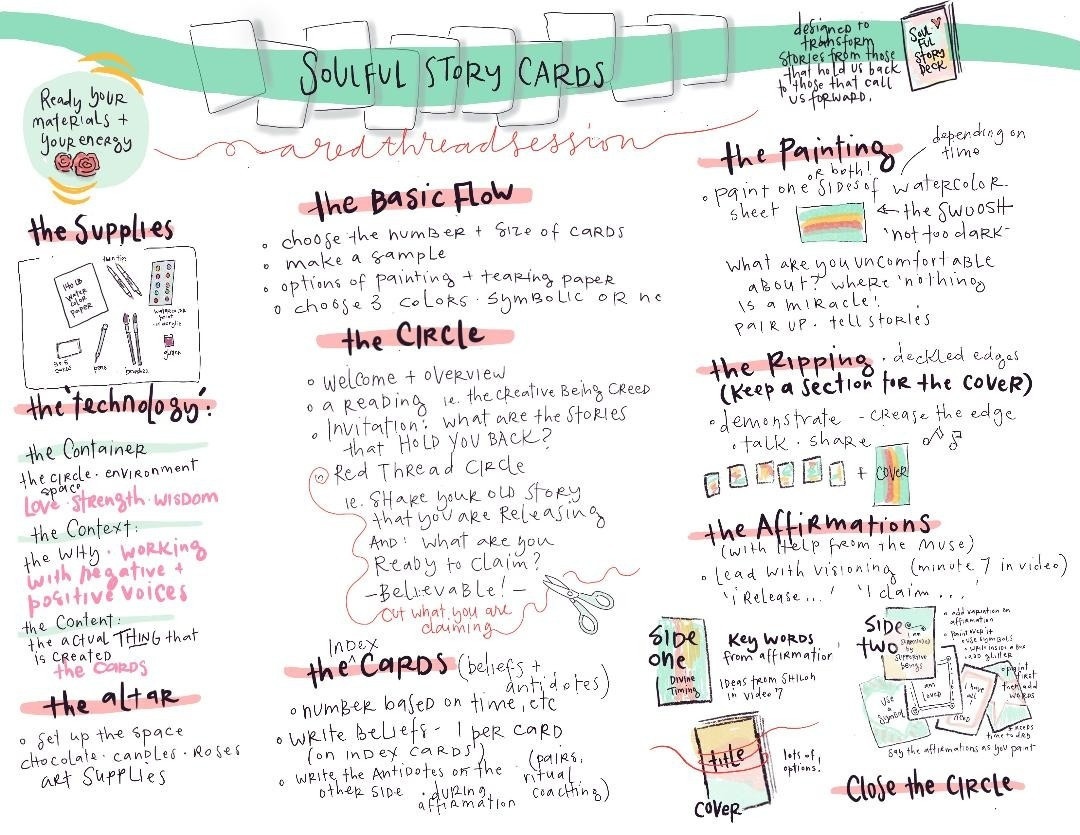 SOULFUL STORY CARDS
a red thread session
designed to
transform
stories from those
that hold us back
to those that call
us forward.
SOUL
FUL
STORY
DECK
Ready your
materials +
your energy
the Supplies
HOLD
WATER
COLOR
PAPER
pens
brushes
glitter
the "technology":
the Container
the circle · environment
space
Love · Strength · WISDOM
the Context:
the WHY · WORKING
WITH negative +
positive voices
the Content:
the actual THING that
is created
the CARDS
the altar
set up the space
chocolate · candles · Roses
art supplies
the Basic Flow
choose the number + size of cards
make a sample
options of painting + tearing paper
choose 3 colors · symbolic OR
the CIRCLE
welcome + overview
a reading ie. the creative Being Creed
Invitation: what are the stories
that HOLD YOU BACK?
Red Thread Circle
ie. Share your old story
that you are Releasing
And: what are you
Ready to Claim?
- Believable! -
Cut what you are
claiming
INDEX
the CARDS (beliefs +
antidotes)
number based on time, etc
write Beliefs - 1 per card
(on INDEX CARDS)
write the Antidotes on the
other side · during
affirmation
(pairs,
ritual
coaching)
the Painting
depending on
time
or both!
paint one sides of watercolor
sheet
the SWOOSH
"not too dark"
what are you uncomfortable
about? where "nothing
is a miracle!
pair up · tell stories
the Ripping · deckled edges
(keep a section for the cover)
demonstrate - crease the edge
· talk · share
+ COVER
the Affirmations
(with Help from the Muse)
Lead with visioning (minute 7 in video)
"i Release..." "I claim..."
SIDE
one
Divine
Timing
Key words
from affirmation
Ideas from SHILOH
in video 7
title
COVER
lots of
options!
SIDE
two
I am
supported by
supportive
beings
add variation on
affirmation
use symbols
write inside a box
add glitter
paint
first
then add
words
use
a symbol
I am
loved
I have
all I
need
needs
time to dry
say the affirmations as you paint
Close the Circle